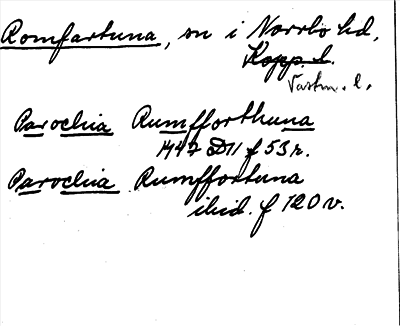 Romfartuna, sn i Norrbo hd,
Kopp. l.
Västm. l.
Parochia Rumfforthuna
1447 D11 f 53 r.
Parochia Rumffortuna
ibid. f 120 v.